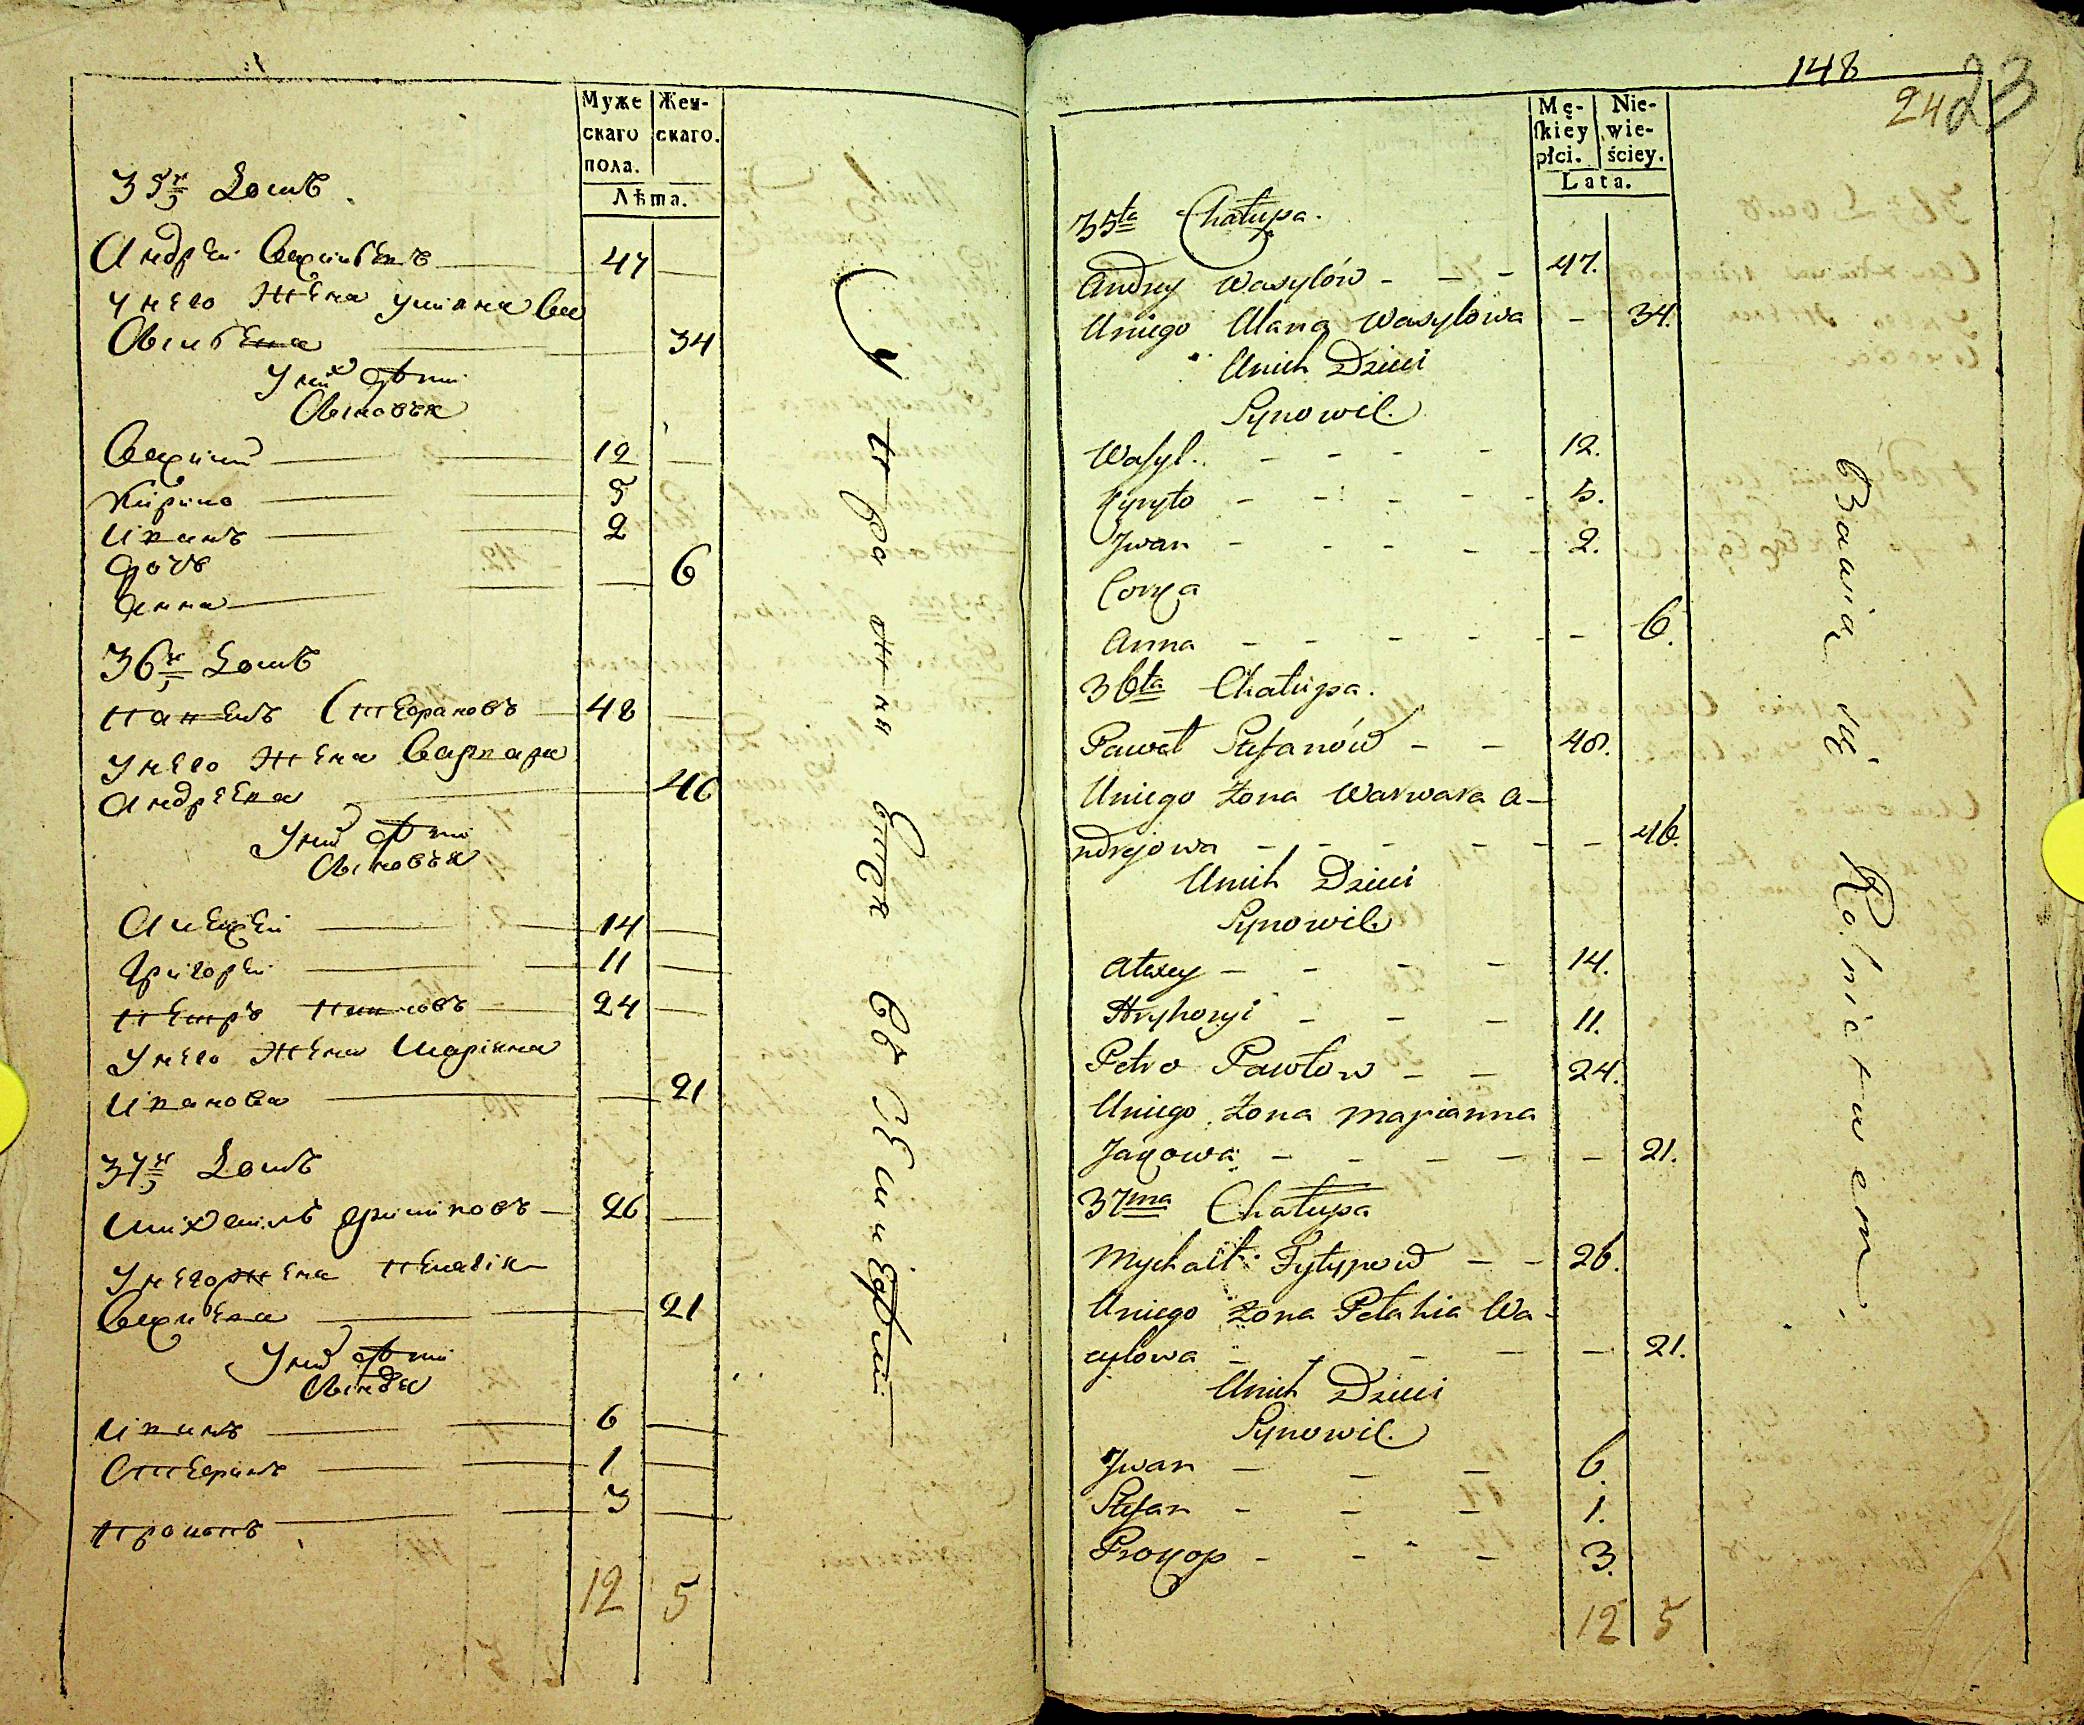 Муже
скаго
пола.
Жен-
скаго.
Лѣта.
35й Домъ
Андрей Василевъ 47
У него Жена Уліяна Ва
силева 34
У них Дѣти
Сыновья
Василій 12
Кирило 5
Иванъ 2
Дочь 6
Анна
36й Домъ
Павелъ Стефановъ 48
У него Жена Варвара
Андреева 46
У них Дѣти
Сыновья
Алексей 14
Григорей 11
Петръ Павловъ 24
У него Жена Маріяна
Иванова 21
37й Домъ
Михаилъ Филиповъ 26
У него Жена Пелагія
Василева 21
У них Дѣти
Иванъ 6
Стефанъ 1
Прокопъ 3
12 5
Упражняется въ земледѣліи
148
24 23
Mę-
skiey
płci.
Nie-
wie-
ściey.
Lata.
35ta Chałupa.
Andrey Wasylów - - - 47.
Uniego Ulana Wasylowa - 34.
Unich Dzieci
Synowie.
Wasyl. - - - - 12.
Kyryło - - - - - 5.
Jwan - - - - - 2.
Corka
Anna - - - - - - 6.
36ta Chałupa.
Paweł Stefanów - - 48.
Uniego Żona Warwara A-
ndrejowa - - - - - - 46.
Unich Dzieci
Synowie
Alexey - - - - 14.
Hryhoryi - - - 11.
Petro Pawłow - - 24.
Uniego Żona Maryanna
Janowa - - - - - 21.
37ma Chałupa
Mychaił Fyłypow - - 26.
Uniego Żona Pełahia Wa-
sylowa - - - - - 21.
Unich Dzieci
Synowie.
Jwan - - - 6.
Stefan - - - 1.
Prokop - - - - 3.
12 5
Bawią się Rolnictwem.